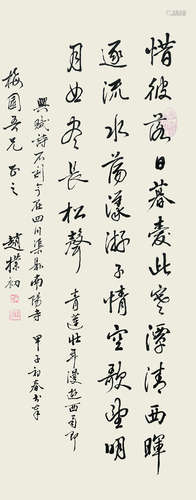 惜彼落日暮愛此寒潭清西暉
逐流水蕩漾游子情空歌望明
月曲尽長松聲 青蓮壮年漫遊西蜀即
興賦詩石刻今在四川渠縣南陽寺 甲子初春書奉
梅園吾兄正之 趙樸初